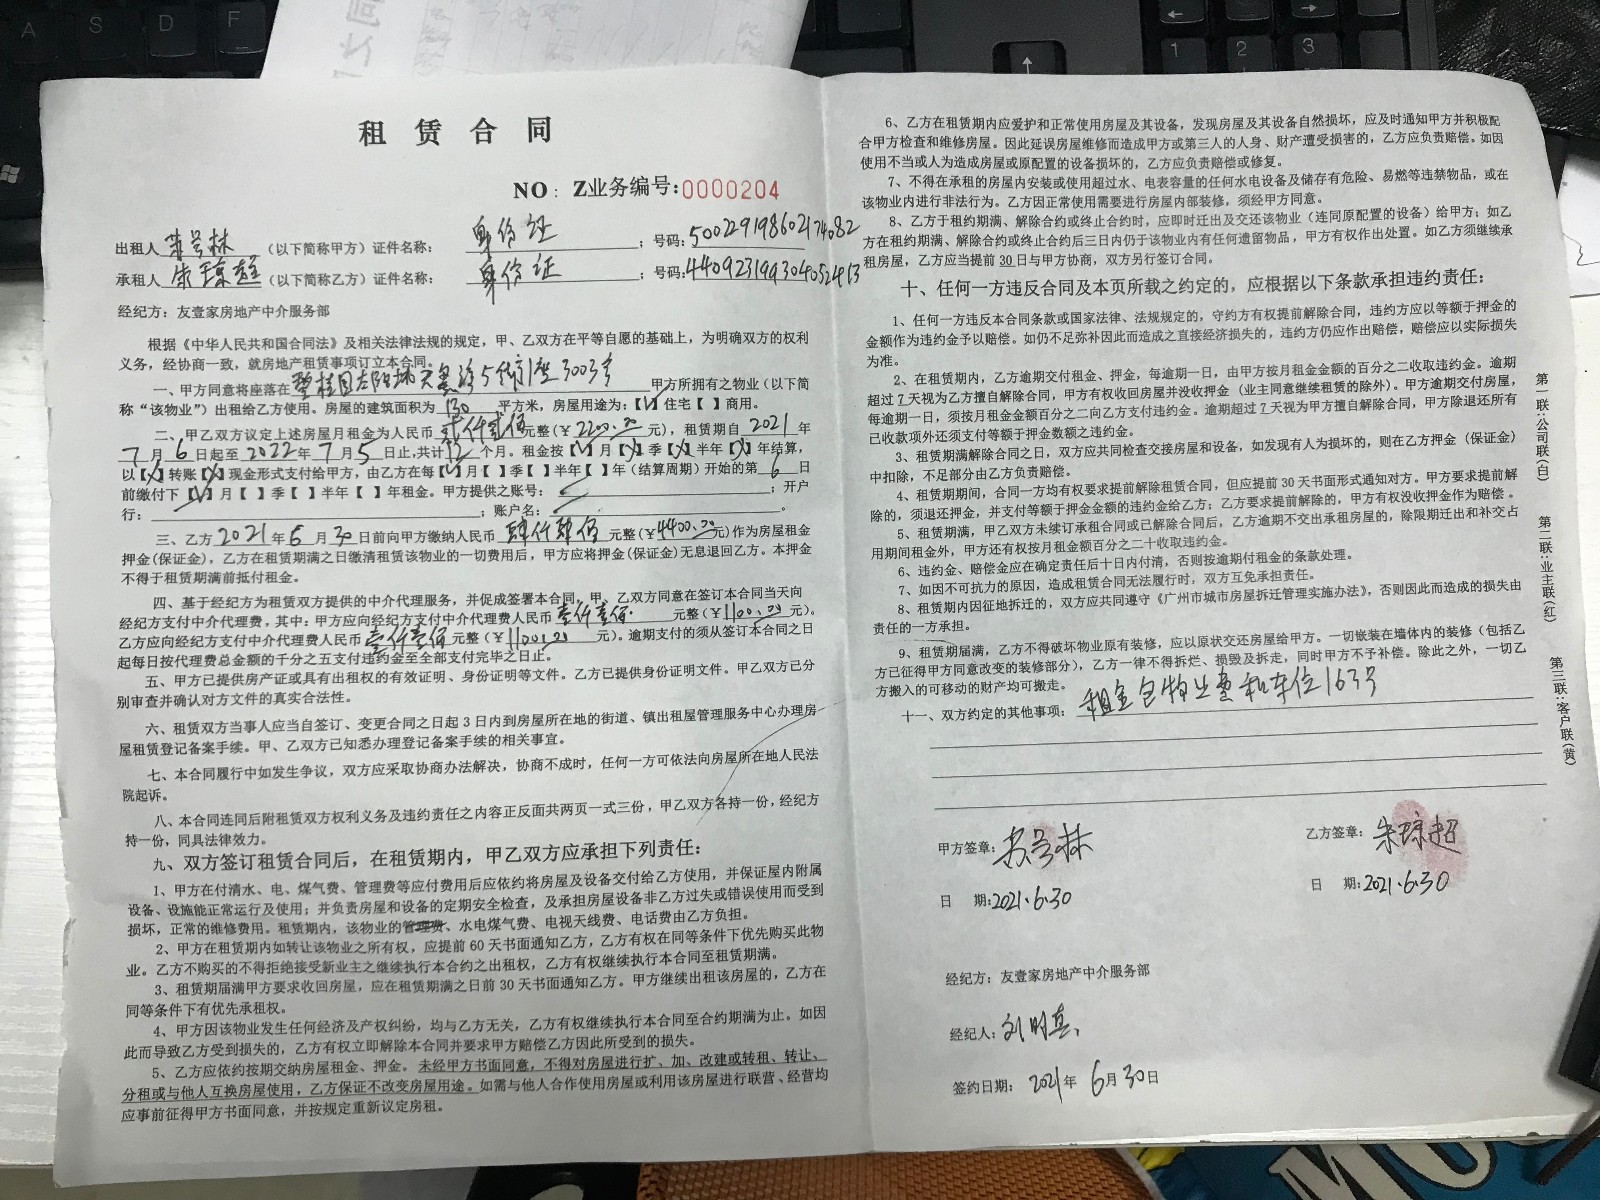 租赁合同
NO：Z业务编号:0000204
出租人 （以下简称甲方）证件名称： 身份证 ；号码:500229198602174082
承租人 朱琼超 （以下简称乙方）证件名称： 身份证 ；号码:440923199304052413
经纪方：友壹家房地产中介服务部
根据《中华人民共和国合同法》及相关法律法规的规定，甲、乙双方在平等自愿的基础上，为明确双方的权利
义务，经协商一致，就房地产租赁事项订立本合同。
一、甲方同意将座落在 碧桂园太阳城天墨 5街 座3003 甲方所拥有之物业（以下简
称“该物业”）出租给乙方使用。房屋的建筑面积为 130 平方米，房屋用途为:【√】住宅【 】商用。
二、甲乙双方议定上述房屋月租金为人民币 贰仟贰佰 元整(￥2200.00元)，租赁期自 2021 年
7月6日起至2022年7月5日止,共计12个月。租金按【√】月【X】季【X】半年【X】年结算,
以【X】转账【X】现金形式支付给甲方，由乙方在每【√】月【 】季【 】半年【 】年（结算周期）开始的第 6 日
前缴付下【√】月【 】季【 】半年【 】年租金。甲方提供之账号： ；开户
行： ；账户名： 。
三、乙方 2021 年 6 月 30 日前向甲方缴纳人民币 肆仟肆佰 元整(￥4400.00元)作为房屋租金
押金(保证金)，乙方在租赁期满之日缴清租赁该物业的一切费用后，甲方应将押金(保证金)无息退回乙方。本押金
不得于租赁期满前抵付租金。
四、基于经纪方为租赁双方提供的中介代理服务，并促成签署本合同，甲、乙双方同意在签订本合同当天向
经纪方支付中介代理费，其中：甲方应向经纪方支付中介代理费人民币 壹仟壹佰 元整(￥1100.00 元)。
乙方应向经纪方支付中介代理费人民币 壹仟壹佰 元整(￥1100.00 元)。逾期支付的须从签订本合同之日
起每日按代理费总金额的千分之五支付违约金至全部支付完毕之日止。
五、甲方已提供房产证或具有出租权的有效证明、身份证明等文件。乙方已提供身份证明文件。甲乙双方已分
别审查并确认对方文件的真实合法性。
六、租赁双方当事人应当自签订、变更合同之日起3日内到房屋所在地的街道、镇出租屋管理服务中心办理房
屋租赁登记备案手续。甲、乙双方已知悉办理登记备案手续的相关事宜。
七、本合同履行中如发生争议，双方应采取协商办法解决，协商不成时，任何一方可依法向房屋所在地人民法
院起诉。
八、本合同连同后附租赁双方权利义务及违约责任之内容正反面共两页一式三份，甲乙双方各持一份，经纪方
持一份，同具法律效力。
九、双方签订租赁合同后，在租赁期内，甲乙双方应承担下列责任：
1、甲方在付清水、电、煤气费、管理费等应付费用后应依约将房屋及设备交付给乙方使用，并保证屋内附属
设备、设施能正常运行及使用；并负责房屋和设备的定期安全检查，及承担房屋设备非乙方过失或错误使用而受到
损坏，正常的维修费用。租赁期内，该物业的管理费、水电煤气费、电视天线费、电话费由乙方负担。
2、甲方在租赁期内如转让该物业之所有权，应提前60天书面通知乙方，乙方有权在同等条件下优先购买此物
业。乙方不购买的不得拒绝接受新业主之继续执行本合约之出租权，乙方有权继续执行本合同至租赁期满。
3、租赁期届满甲方要求收回房屋，应在租赁期满之日前30天书面通知乙方。甲方继续出租该房屋的，乙方在
同等条件下有优先承租权。
4、甲方因该物业发生任何经济及产权纠纷，均与乙方无关，乙方有权继续执行本合同至合约期满为止。如因
此而导致乙方受到损失的，乙方有权立即解除本合同并要求甲方赔偿乙方因此所受到的损失。
5、乙方应依约按期交纳房屋租金、押金。未经甲方书面同意，不得对房屋进行扩、加、改建或转租、转让、
分租或与他人互换房屋使用，乙方保证不改变房屋用途。如需与他人合作使用房屋或利用该房屋进行联营、经营均
应事前征得甲方书面同意，并按规定重新议定房租。
6、乙方在租赁期内应爱护和正常使用房屋及其设备，发现房屋及其设备自然损坏，应及时通知甲方并积极配
合甲方检查和维修房屋。因此延误房屋维修而造成甲方或第三人的人身、财产遭受损害的，乙方应负责赔偿。如因
使用不当或人为造成房屋或原配置的设备损坏的，乙方应负责赔偿或修复。
7、不得在承租的房屋内安装或使用超过水、电表容量的任何水电设备及储存有危险、易燃等违禁物品，或在
该物业内进行非法行为。乙方因正常使用需要进行房屋内部装修，须经甲方同意。
8、乙方于租约期满、解除合约或终止合约时，应即时迁出及交还该物业（连同原配置的设备）给甲方；如乙
方在租约期满、解除合约或终止合约后三日内仍于该物业内有任何遗留物品，甲方有权作出处置。如乙方须继续承
租房屋，乙方应当提前30日与甲方协商，双方另行签订合同。
十、任何一方违反合同及本页所载之约定的，应根据以下条款承担违约责任：
1、任何一方违反本合同条款或国家法律、法规规定的，守约方有权提前解除合同，违约方应以等额于押金的
金额作为违约金予以赔偿。如仍不足弥补因此而造成之直接经济损失的，违约方仍应作出赔偿，赔偿应以实际损失
为准。
2、在租赁期内，乙方逾期交付租金、押金，每逾期一日，由甲方按月租金金额的百分之二收取违约金。逾期
超过7天视为乙方擅自解除合同，甲方有权收回房屋并没收押金（业主同意继续租赁的除外）。甲方逾期交付房屋，
每逾期一日，须按月租金金额百分之二向乙方支付违约金。逾期超过7天视为甲方擅自解除合同，甲方除退还所有
已收款项外还须支付等额于押金数额之违约金。
3、租赁期满解除合同之日，双方应共同检查交接房屋和设备，如发现有人为损坏的，则在乙方押金（保证金）
中扣除，不足部分由乙方负责赔偿。
4、租赁期期间，合同一方均有权要求提前解除租赁合同，但应提前30天书面形式通知对方。甲方要求提前解
除的，须退还押金，并支付等额于押金金额的违约金给乙方；乙方要求提前解除的，甲方有权没收押金作为赔偿。
5、租赁期满，甲乙双方未续订承租合同或已解除合同后，乙方逾期不交出承租房屋的，除限期迁出和补交占
用期间租金外，甲方还有权按月租金额百分之二十收取违约金。
6、违约金、赔偿金应在确定责任后十日内付清，否则按逾期付租金的条款处理。
7、如因不可抗力的原因，造成租赁合同无法履行时，双方互免承担责任。
8、租赁期内因征地拆迁的，双方应共同遵守《广州市城市房屋拆迁管理实施办法》，否则因此而造成的损失由
责任的一方承担。
9、租赁期届满，乙方不得破坏物业原有装修，应以原状交还房屋给甲方。一切嵌装在墙体内的装修（包括乙
方已征得甲方同意改变的装修部分），乙方一律不得拆烂、损毁及拆走，同时甲方不予补偿。除此之外，一切乙
方搬入的可移动的财产均可搬走。
十一、双方约定的其他事项： 租金包物业费和车位163号
甲方签章：
乙方签章： 朱琼超
日 期:2021.6.30
日 期:2021.6.30
经纪方：友壹家房地产中介服务部
经纪人：刘明真
签约日期： 2021年 6月30日
第一联:公司联(白)
第二联:业主联(红)
第三联:客户联(黄)
A S D F
1 2 3